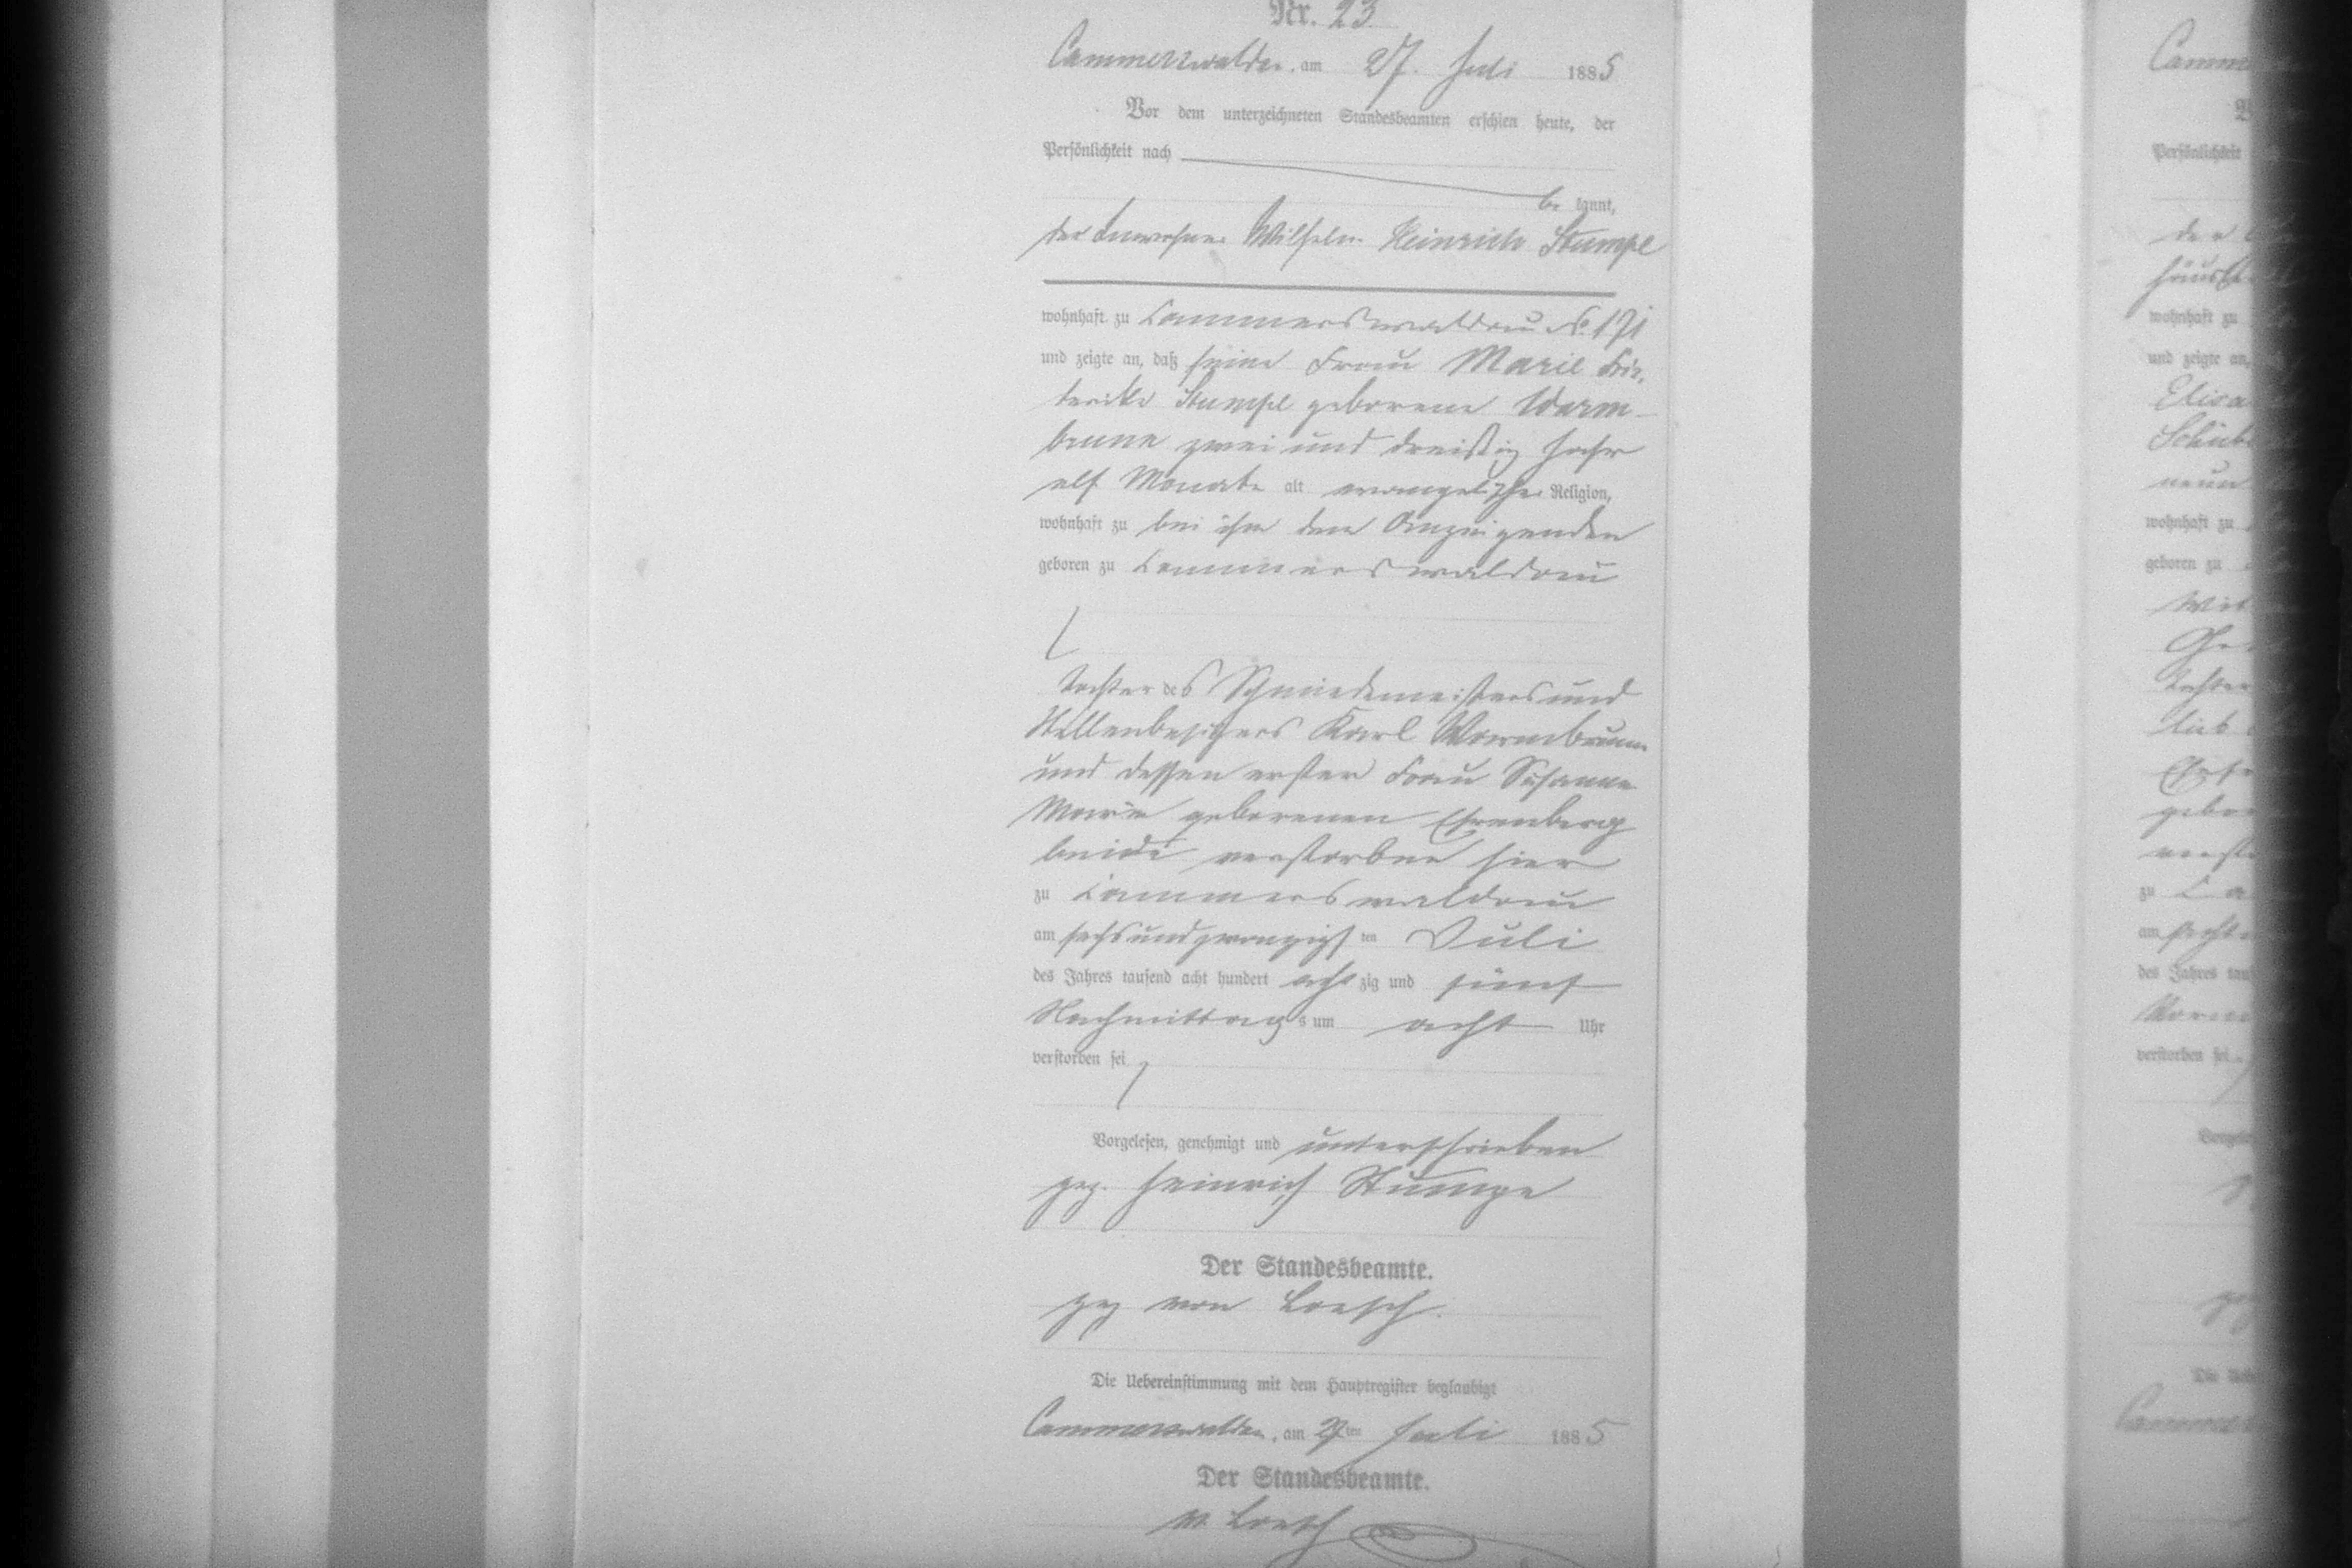 Nr. 23.
Cammerswaldau, am 27. Juli 1885
Vor dem unterzeichneten Standesbeamten erschien heute, der
Persönlichkeit nach
be kannt,
der Inwohner Wilhelm Heinrich Stumpe
wohnhaft zu Cammerswaldau No. 171
und zeigte an, daß seine Frau Marie
Stumpe geborene Warm-
brunn zwei und dreißig Jahr
elf Monate alt evangelischer Religion,
wohnhaft zu bei ihm dem Anzeigenden
geboren zu Cammerswaldau
Tochter des Schmiedemeisters und
Stellenbesitzers Karl Warmbrunn
und dessen erster Frau Susanne
Marie geborenen Ehrenberg
beide verstorben hier
zu Cammerswaldau
am sechsundzwanzigsten Juli
des Jahres tausend acht hundert achtzig und fünf
Nachmittags um acht Uhr
verstorben sei
Vorgelesen, genehmigt und unterschrieben
gez. Heinrich Stumpe
Der Standesbeamte.
gez von Loesch.
Die Uebereinstimmung mit dem Hauptregister beglaubigt
Cammerswaldau, am 27ten Juli 1885
Der Standesbeamte.
v. Loesch
Camm
Persönlichkeit
der
häusl
wohnhaft zu
und zeigte an,
Elisa
Schub
neun
wohnhaft zu
geboren zu
Tochter
gebor
verst
zu Ca
am
des Jahres tau
Vorm
verstorben sei
gez
Die Ueb